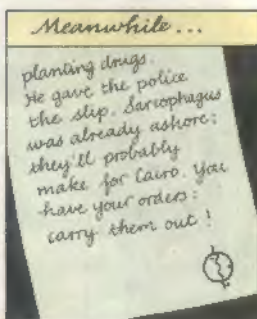 Meanwhile...
planting drugs.
He gave the police
the slip. Sarcophagus
was already ashore;
they'll probably
make for Cairo. You
have your orders:
carry them out!